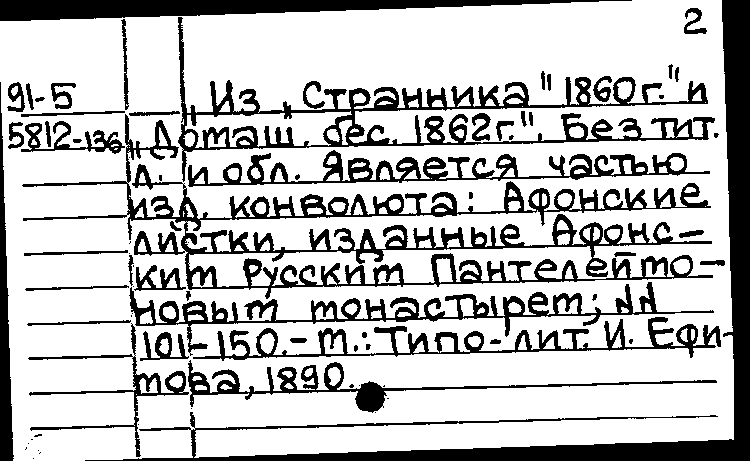 2
91-5 „Из „Странника" 1860г." и
5812-136 „Доташ. бес. 1862г.". Без тит.
л. и обл. Является частью
изд. конволюта: Афонские
листки, изданные Афонс-
ким Русским Пантелеймо-
новым монастырем; NN
101-150.- М.: Типо-лит. И. Ефи-
мова, 1890.